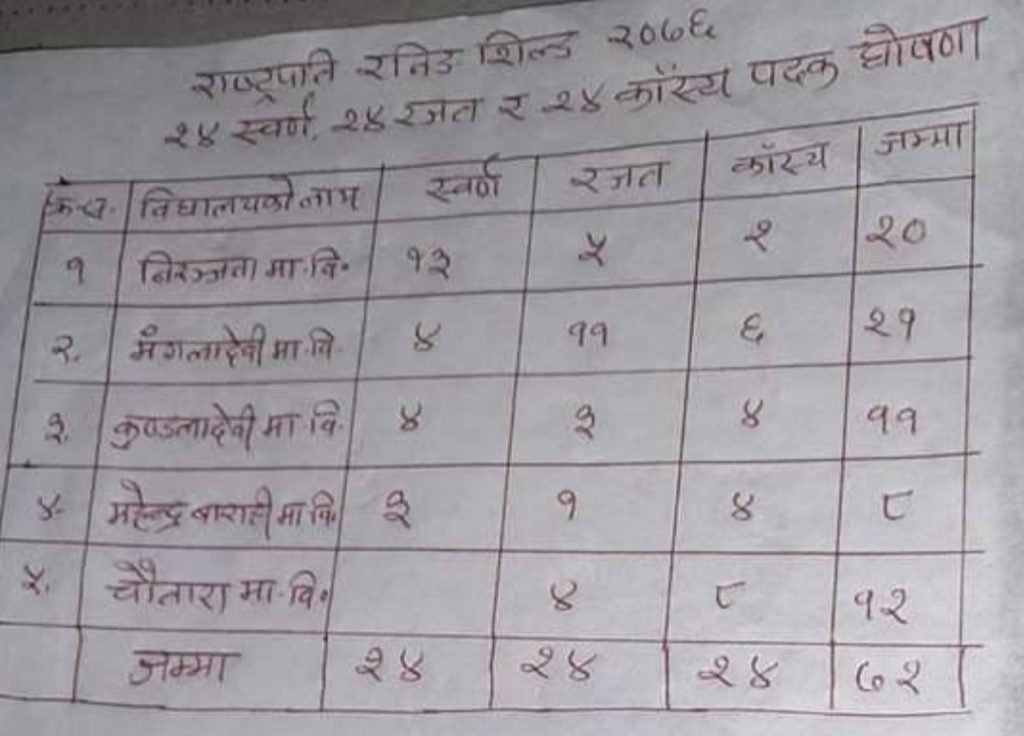 राष्ट्रपति रनिङ शिल्ड २०७६
२४ स्वर्ण, २४ रजत र २४ काँस्य पदक घोषणा
क्र.स. विद्यालयको नाम स्वर्ण रजत काँस्य जम्मा
१ निरञ्जना मा.वि. १३ ५ २ २०
२. मंगलादेवी मा.वि. ४ ११ ६ २१
३. कुण्डलादेवी मा.वि. ४ ३ ४ ११
४. महेन्द्र बाराही मा.वि. ३ १ ४ ८
५. चौतारा मा.वि. ४ ८ १२
जम्मा २४ २४ २४ ७२